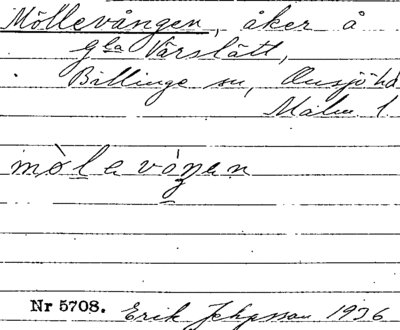 Möllevången, åker å
Gla Vårslätt,
Billinge sn, Onsjö hd
Malm. l.
mòlevòŋen
Nr 5708. Erik Jeppsson 1936